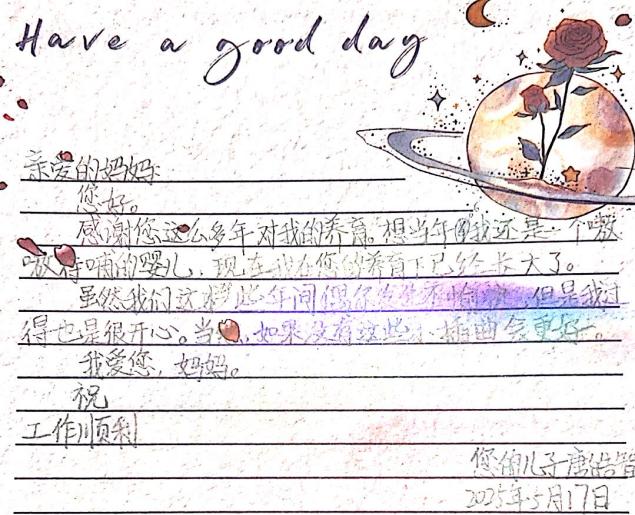 Have a good day
亲爱的妈妈:
您好。
感谢您这么多年对我的养育。想当年我还是一个嗷
嗷待哺的婴儿,现在我在您的养育下已经长大了。
虽然我们这些年间偶尔发生不愉快,但是我过
得也是很开心。当然,如果没有这些小插曲会更好。
我爱您,妈妈。
祝
工作顺利
您的儿子唐皓
2025年5月17日